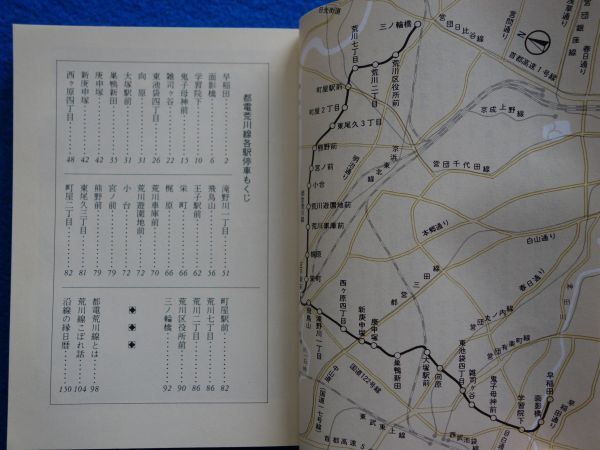 都電荒川線各駅停車もくじ
早稲田……2
面影橋……6
学習院下……10
鬼子母神前……15
雑司ヶ谷……22
東池袋四丁目……26
向原……31
大塚駅前……31
巣鴨新田……35
庚申塚……42
新庚申塚……42
西ヶ原四丁目……48
滝野川一丁目……51
飛鳥山……56
王子駅前……61
栄町……66
梶原……66
荒川車庫前……70
荒川遊園地前……72
小台……72
宮ノ前……79
熊野前……79
東尾久三丁目……81
町屋二丁目……82
町屋駅前……82
荒川七丁目……86
荒川二丁目……86
荒川区役所前……90
三ノ輪橋……92
都電荒川線とは……98
荒川線こぼれ話……104
沿線の縁日暦……150
日光街道
三ノ輪橋
営団日比谷線
国際通り
営団銀座線
春日通り
首都高速1号線
荒川七丁目
荒川区役所前
荒川二丁目
町屋駅前
町屋2丁目
東尾久3丁目
京成上野線
熊野前
宮ノ前
小台
明治通り
京浜東北線
営団千代田線
荒川遊園地前
荒川車庫前
梶原
栄町
本郷通り
白山通り
春日通り
都営三田線
神田川
飛鳥山
滝野川一丁目
西ヶ原四丁目
新庚申塚
庚申塚
巣鴨新田
大塚駅前
向原
東池袋四丁目
雑司ヶ谷
鬼子母神前
学習院下
面影橋
早稲田
早稲田通り
営団丸ノ内線
営団有楽町線
国道122号線
中山道
(国道一七号線)
東武東上線
首都高速5
西武池袋線
目白通り